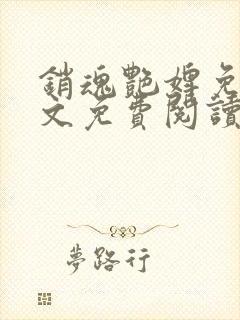 銷魂艷婢免
文免費閱讀
夢路行